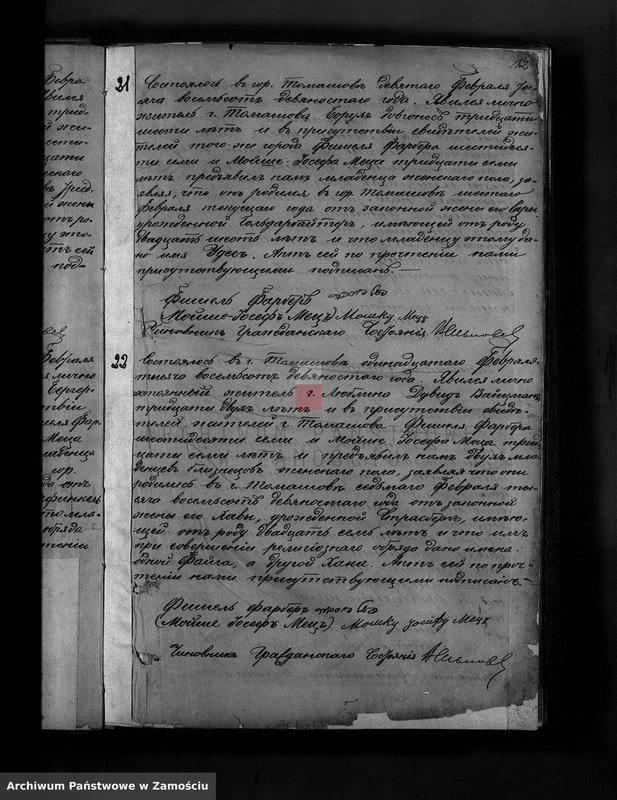 13
21
Состоялось въ гор. Томашовѣ девятаго Февраля ты-
сяча восемьсотъ девяностаго года. Явился лично
житель г. Томашова Борухъ тридцати
шести лѣтъ и въ присутствіи свидѣтелей жи-
телей того-же города Фишеля Фарбера шестидеся-
ти семи и Мойше-Іосефа Меца тридцати семи
лѣтъ предъявилъ намъ младенца женскаго пола, за-
являя, что онъ родился въ гор. Томашовѣ шестаго
Февраля текущаго года отъ законной жены его Сары
урожденной имѣющей отъ роду
двадцать шесть лѣтъ и что младенцу этому да-
но имя Удесъ. Актъ сей по прочтеніи нами
присутствующими подписанъ.—
Фишель Фарберъ
Мойше-Іосефъ Мецъ Мошку Мецъ
Чиновникъ Гражданскаго Состоянія
22
Состоялось въ г. Томашовѣ одинадцатаго Февраля
тысяча восемьсотъ девяностаго года. Явился лично
житель г. Люблина Дувидъ Вайцманъ
тридцати двухъ лѣтъ и въ присутствіи свидѣ-
телей жителей г. Томашова Фишеля Фарбера
шестидесяти семи и Мойше Іосефа Меца трид-
цати семи лѣтъ и предъявилъ намъ двухъ мла-
денцевъ близнецовъ женскаго пола, заявляя что они
родились въ г. Томашовѣ седьмаго Февраля ты-
сяча восемьсотъ девяностаго года отъ законной
жены его Хавы, урожденной Страсбергъ, имѣю-
щей отъ роду двадцать семь лѣтъ и что имъ
при совершеніи религіознаго обряда дано имена:
одной Файга, а другой Хана. Актъ сей по проч-
теніи нами присутствующими подписанъ.—
Фишель Фарберъ
(Мойше Іосефъ Мецъ) Мошку Мецъ
Чиновникъ Гражданскаго Состоянія
Archiwum Państwowe w Zamościu